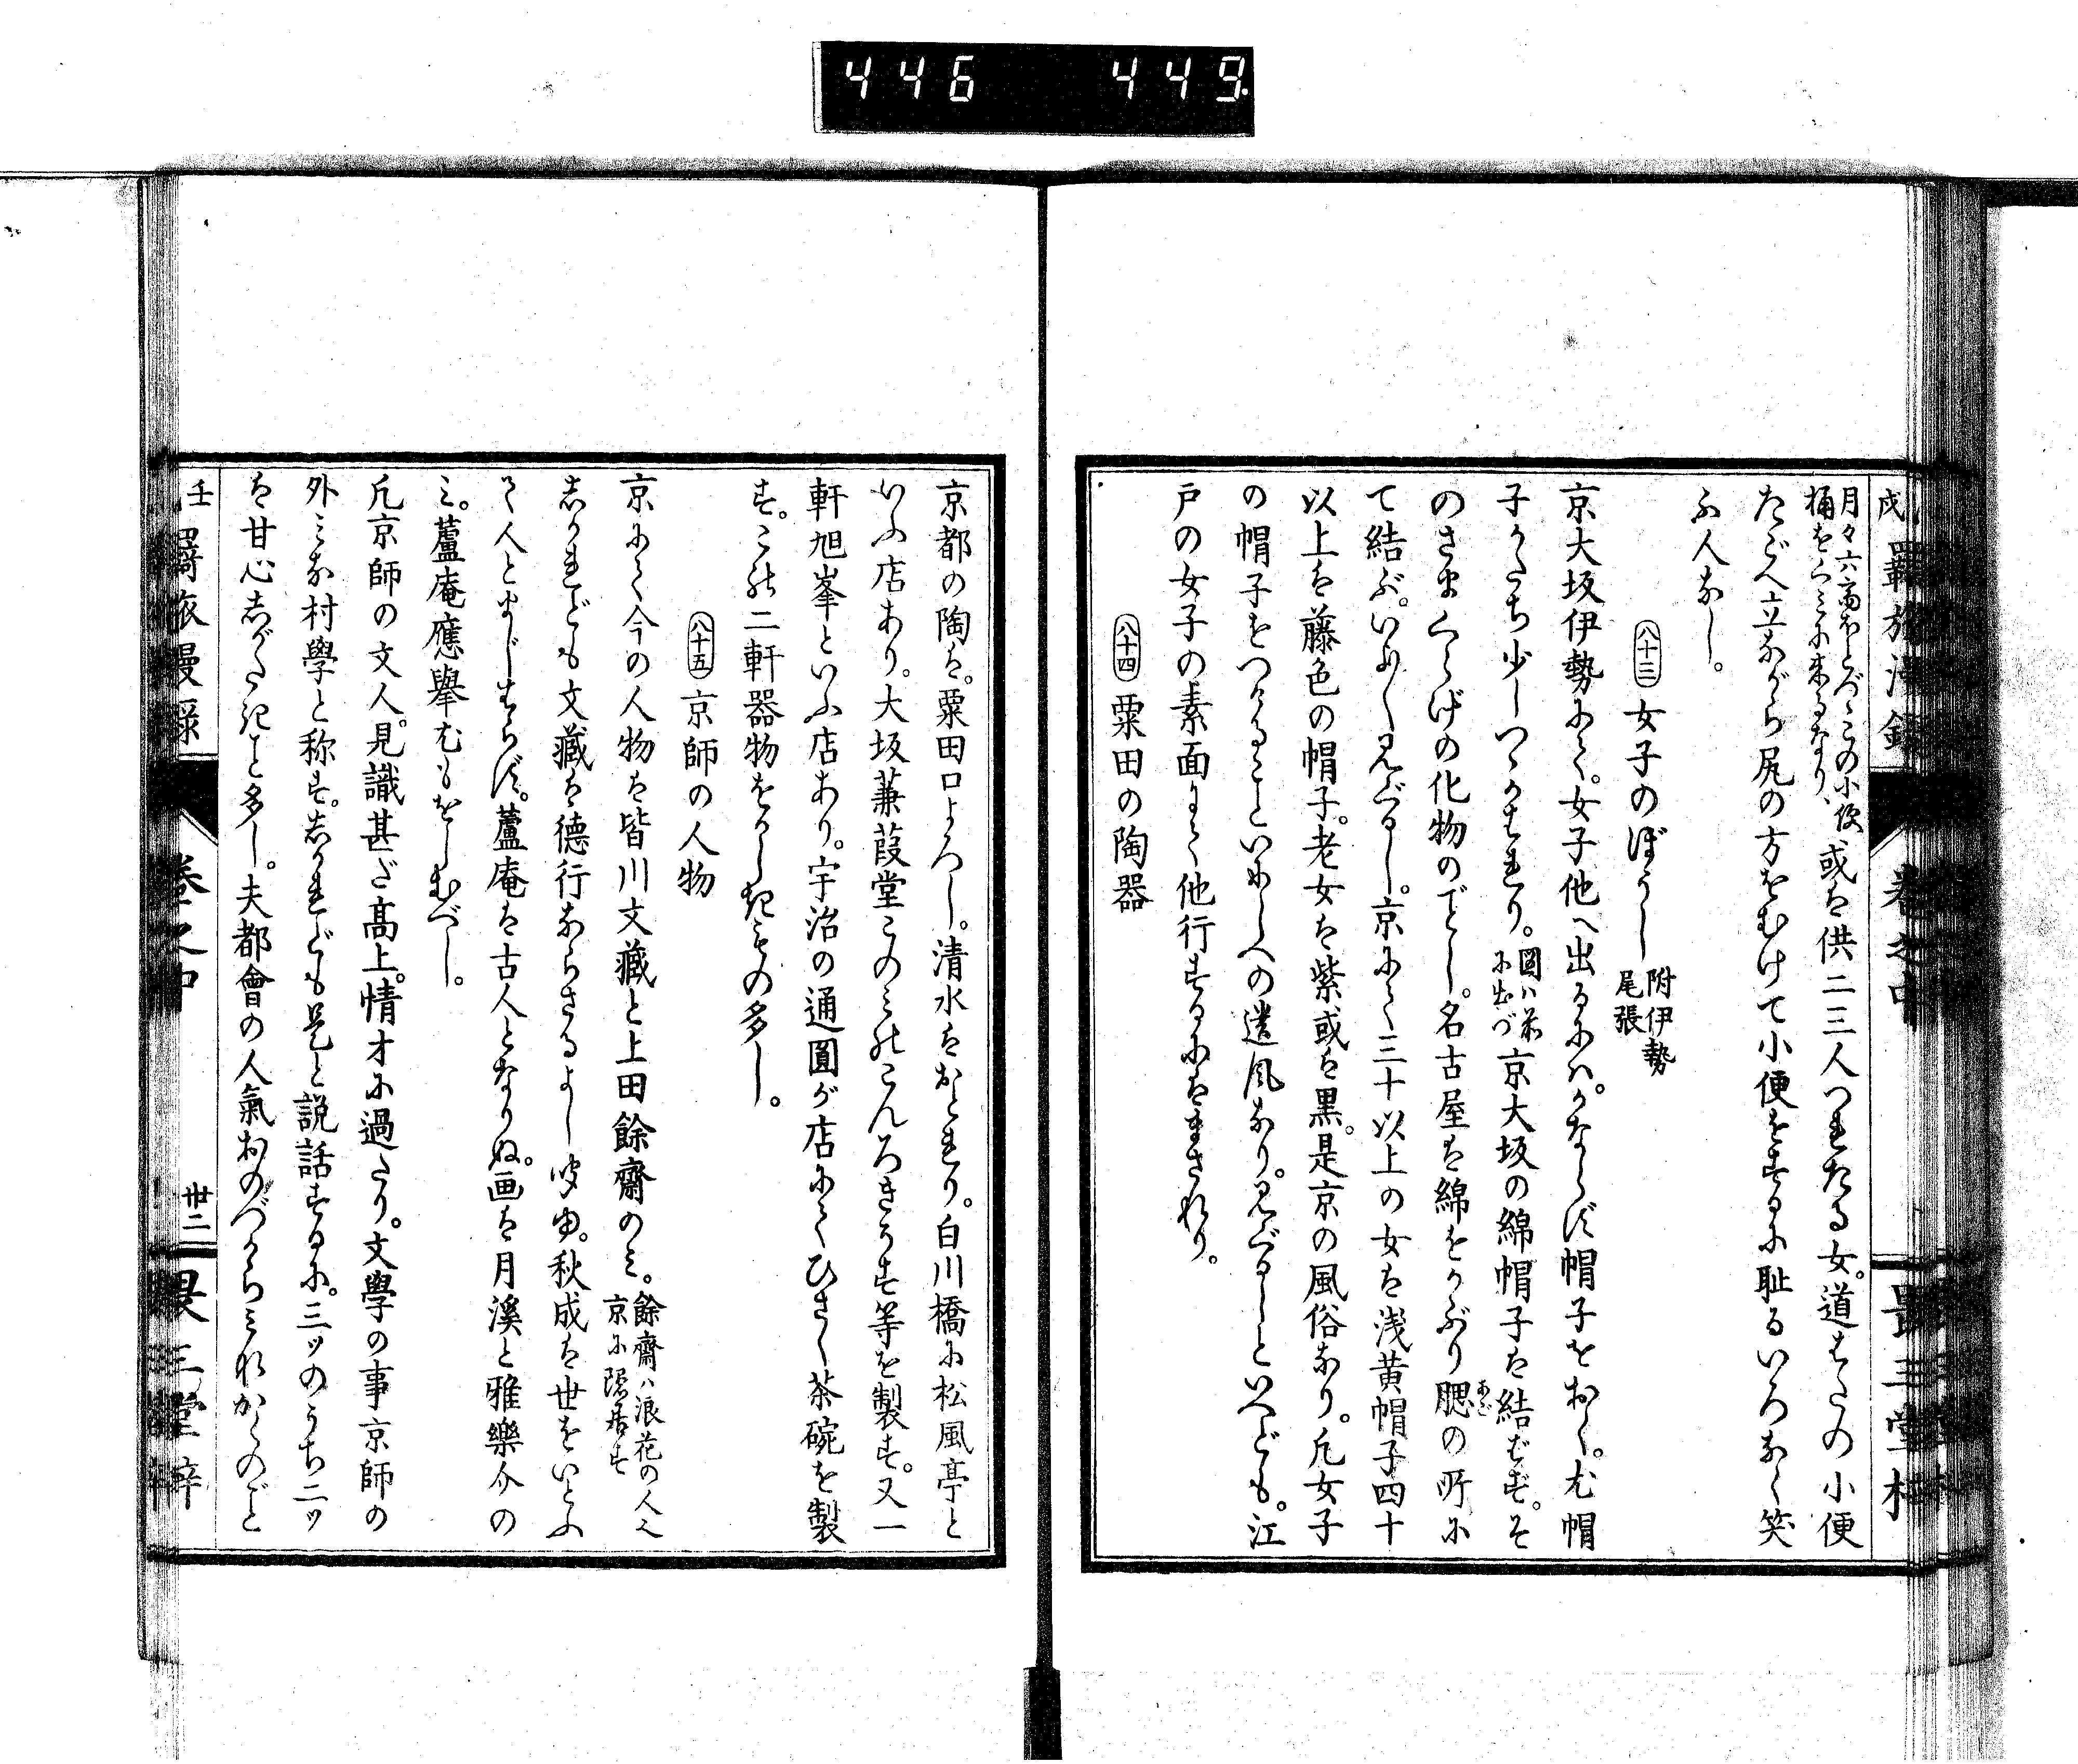 446 449
月々六齋ほどづゝこの小便
桶をくみに來るなり、
或は供二三人つれたる女。道ばたの小便
たごへ立ながら尻の方をむけて小便をするに恥るいろなく笑
ふ人なし。
八十三 女子のぼうし 附伊勢
尾張
京大坂伊勢にて。女子他へ出るにハ。かならず帽子をおく。尤帽
子かたち少しづゝかはれり。圖ハ末
に出づ 京大坂の綿帽子は結ばず。そ
のさまくらげの化物のごとし。名古屋は綿をかぶり腮の所に
あご
て結ぶ。いやしく見ぐるし。京にて三十以上の女は浅黄帽子四十
以上は藤色の帽子。老女は紫或は黒。是京の風俗なり。凡女子
の帽子をつけることいにしへの遺風なり。見ぐるしといへども。江
戸の女子の素面にて他行するにはまされり。
八十四 粟田の陶器
京都の陶は。粟田口よろし。清水はおとれり。白川橋に松風亭と
いふ店あり。大坂蒹葭堂このみのこんろきうす等を製す。又一
軒旭峯といふ店あり。宇治の通圓が店にてひさく茶碗を製
す。この二軒器物をかしきもの多し。
八十五 京師の人物
京にて今の人物は皆川文藏と上田餘齋のみ。餘齋ハ浪花の人
京に隠居す
しかれども文藏は德行ならざるよし聞ゆ。秋成は世をいとふ
て人とまじはらず。蘆庵は古人となりぬ。画は月溪と雅樂介の
み。蘆庵應擧尤もをしむべし。
凡京師の文人。見識甚だ高上。情才に過たり。文學の事京師の
外みな村學と称す。しかれども是と說話するに。三ッのうち二ッ
は甘心しがたきこと多し。夫都會の人氣おのづからみれかくのごと
壬戌 羇旅漫録 卷之中 卅二 畏三堂梓